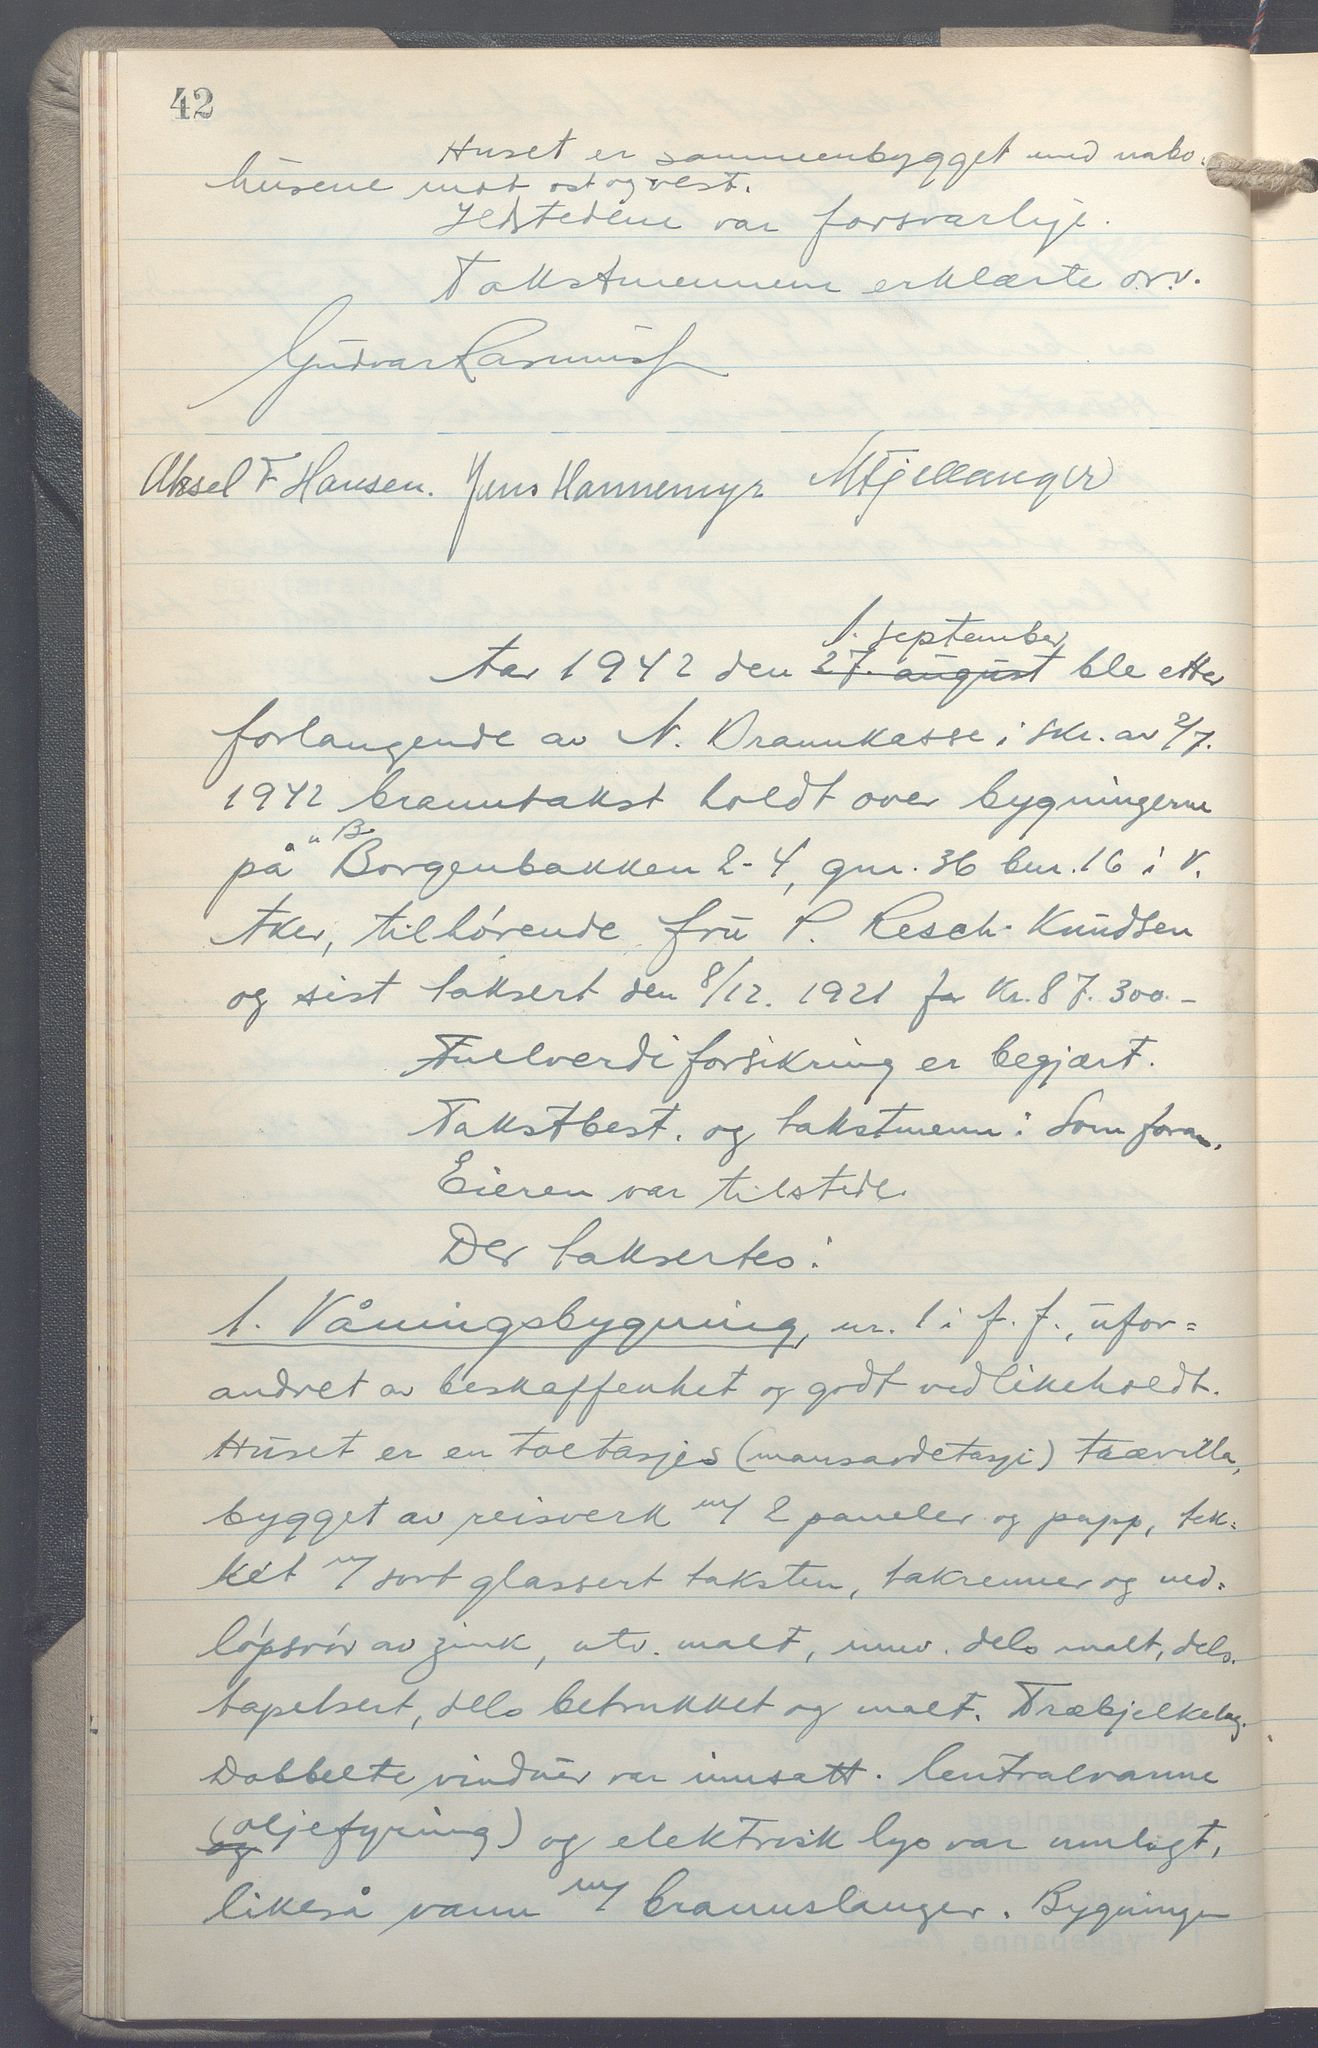 42
Huset er sammenbygget med nabo-
husene mot ost og vest.
Ildstedene var forsvarlige.
Takstmennene erklærte o.s.v.
Aksel F Hansen. Jens Hannemyr MTjellanger
1. september
Aar 1942 den 27. august ble etter
forlangende av N. Brannkasse i skr. av 2/7.
1942 branntakst holdt over bygningerne
på "B
Borgenbakken 2-4, gnr. 36 bnr. 16 i V.
Aker, tilhørende fru P. Resch-Knudsen
og sist taksert den 8/12. 1921 for Kr. 87.300.-
Fullverdiforsikring er begjært.
Takstbest. og takstmenn: Som foran.
Eieren var tilstede.
Der taksertes:
1. Våningsbygning, nr. 1 i f. f., ufor=
andret av beskaffenhet og godt vedlikeholdt.
Huset er en toetasjes (mansardetasje) trævilla,
bygget av reisverk m/ 2 paneler og papp, tek=
ket m/ sort glassert taksten, takrenner og ned=
løpsrør av zink, utv. malt, innv. dels malt, dels
tapetsert, dels betrukket og malt. Træbjelkelag.
Dobbelte vinduer var innsatt. Centralvarme
og (oljefyring) og elektrisk lys var innlagt,
likeså vann m/ brannslanger. Bygningen